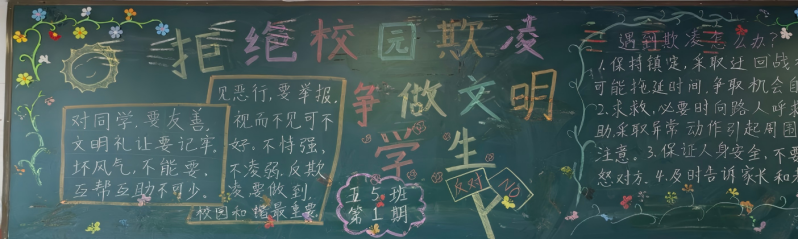 拒绝校园欺凌
争做文明
学生
对同学,要友善,
文明礼让要记牢.
坏风气,不能要,
互帮互助不可少.
见恶行,要举报,
视而不见可不
好,不恃强,
不凌弱,反欺
凌要做到,
校园和谐最重要.
五5班
第1期
反对
NO
遇到欺凌怎么办?
1.保持镇定,采取迂回战
可能拖延时间,争取机会
2.求救,必要时向路人呼
助,采取异常动作引起周围
注意。3.保证人身安全,不要
怒对方.4.及时告诉家长和